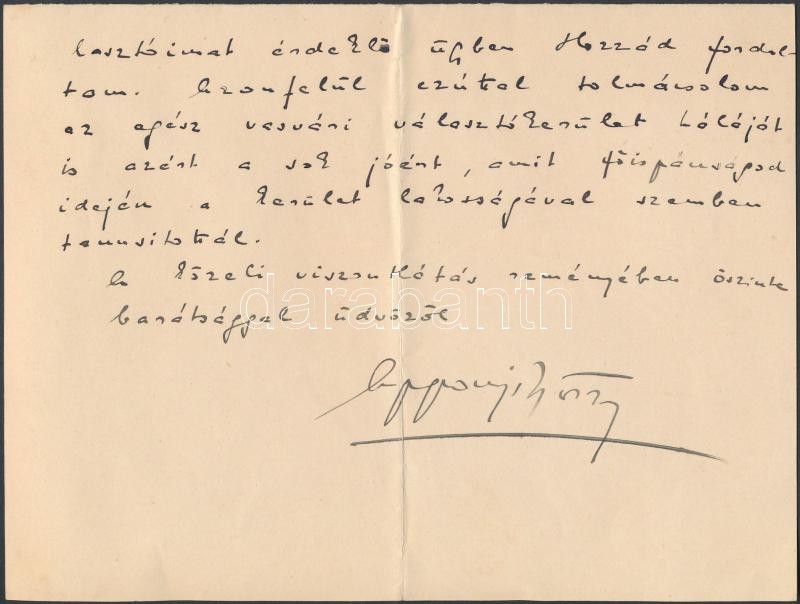 lasztóimat érdeklő ügyben Hozzád fordul-
tam. Azonfelül ezúttal tolmácsolom
az egész vasvári választókerület háláját
is azért a sok jóért, amit főispánságod
idején a kerület lakosságával szemben
tanusitottál.
A közeli viszontlátás reményében őszinte
barátsággal üdvözöl
Apponyi György
darabanth